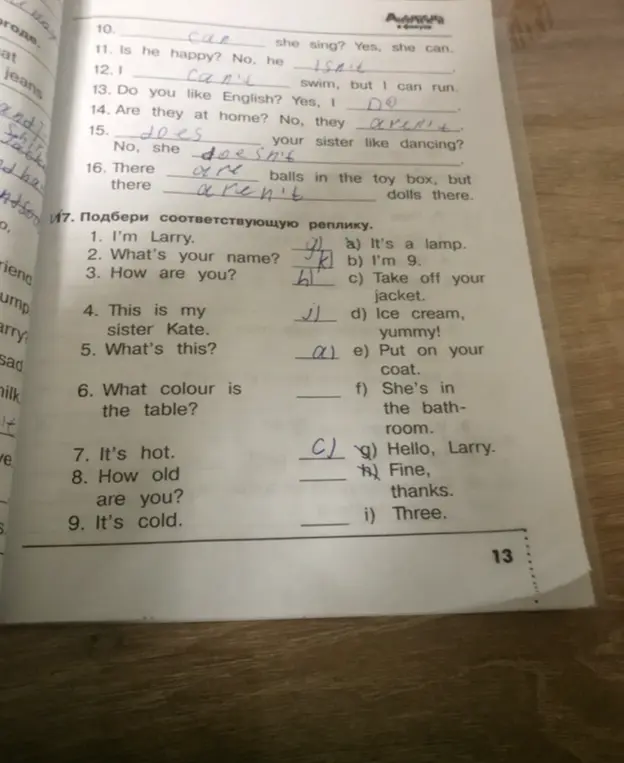 10. can she sing? Yes, she can.
11. Is he happy? No, he isn't.
12. I can't swim, but I can run.
13. Do you like English? Yes, I DO.
14. Are they at home? No, they aren't.
15. does your sister like dancing?
No, she doesn't.
16. There are balls in the toy box, but
there aren't dolls there.
17. Подбери соответствующую реплику.
1. I'm Larry. g) a) It's a lamp.
2. What's your name? k) b) I'm 9.
3. How are you? h) c) Take off your
jacket.
4. This is my j) d) Ice cream,
sister Kate. yummy!
5. What's this? a) e) Put on your
coat.
6. What colour is f) She's in
the table? the bath-
room.
7. It's hot. C) g) Hello, Larry.
8. How old h) Fine,
are you? thanks.
9. It's cold. i) Three.
13
at
jeans
ump
sad